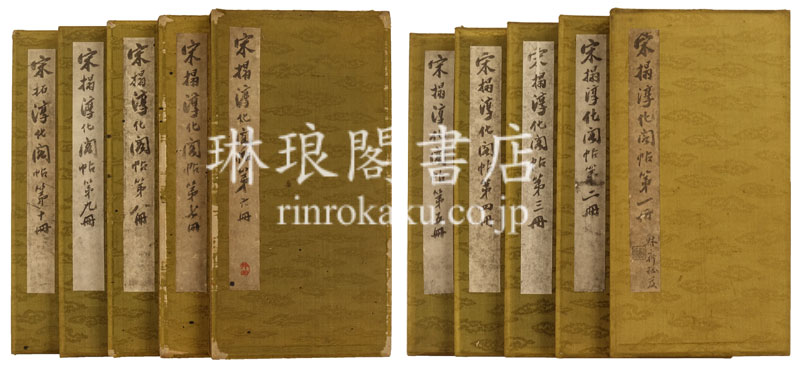 宋搨淳化閣帖第一冊
宋搨淳化閣帖第二冊
宋搨淳化閣帖第三冊
宋搨淳化閣帖第四冊
宋搨淳化閣帖第五冊
宋搨淳化閣帖第六冊
宋搨淳化閣帖第七冊
宋搨淳化閣帖第八冊
宋搨淳化閣帖第九冊
宋拓淳化閣帖第十冊
琳琅閣書店
rinrokaku.co.jp